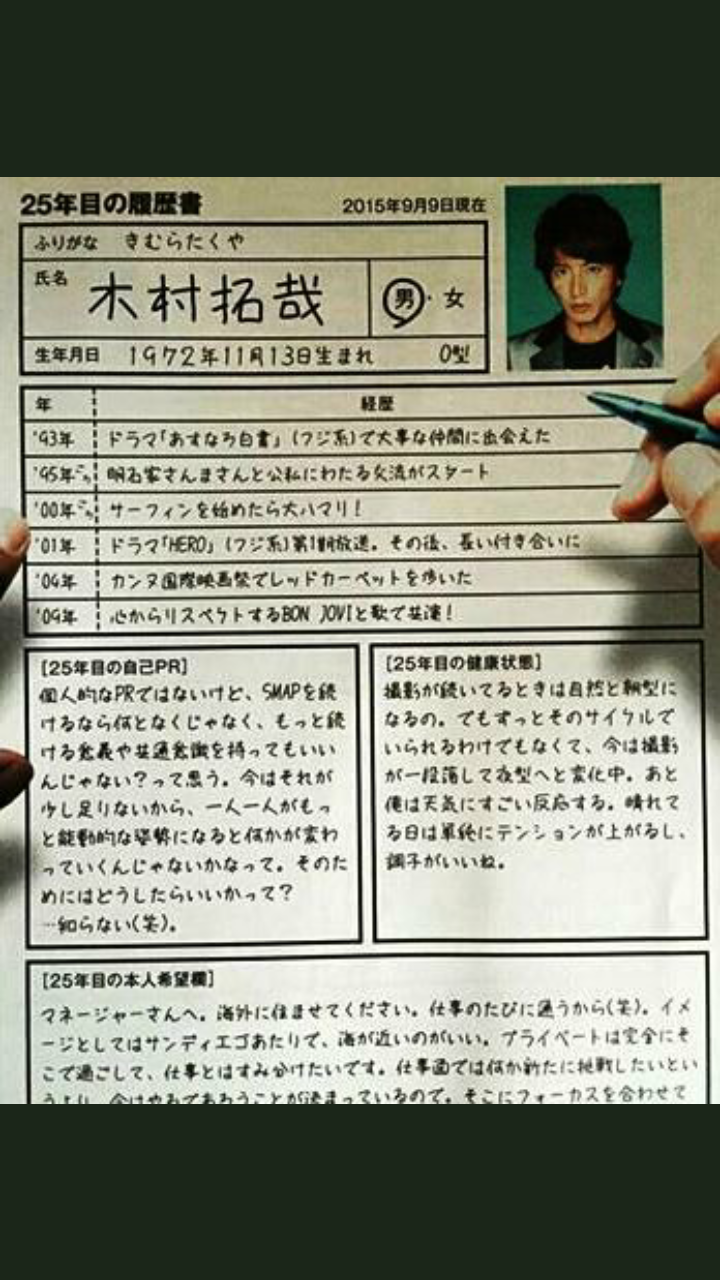 25年目の履歴書
2015年9月9日現在
ふりがな きむらたくや
氏名 木村拓哉 男・女
生年月日 1972年11月13日生まれ O型
年 経歴
'93年 ドラマ「あすなろ白書」(フジ系)で大事な仲間に出会えた
'95年ごろ 明石家さんまさんと公私にわたる交流がスタート
'00年ごろ サーフィンを始めたら大ハマリ!
'01年 ドラマ「HERO」(フジ系)第1期放送。その後、長い付き合いに
'04年 カンヌ国際映画祭でレッドカーペットを歩いた
'09年 心からリスペクトするBON JOVIと歌で共演!
[25年目の自己PR]
個人的なPRではないけど、SMAPを続
けるなら何となくじゃなく、もっと続
ける意義や共通意識を持ってもいい
んじゃない?って思う。今はそれが
少し足りないから、一人一人がもっ
と能動的な姿勢になると何かが変わ
っていくんじゃないかなって。そのた
めにはどうしたらいいかって?
…知らない(笑)。
[25年目の健康状態]
撮影が続いてるときは自然と朝型に
なるの。でもずっとそのサイクルで
いられるわけでもなくて、今は撮影
が一段落して夜型へと変化中。あと
俺は天気にすごい反応する。晴れて
る日は単純にテンションが上がるし、
調子がいいね。
[25年目の本人希望欄]
マネージャーさんへ。海外に住ませてください。仕事のたびに通うから(笑)。イメ
ージとしてはサンディエゴあたりで、海が近いのがいい。プライベートは完全にそ
こで過ごして、仕事とはすみ分けたいです。仕事面では何か新たに挑戦したいとい
うより、今はやるであろうことが決まっているので。そこにフォーカスを合わせて